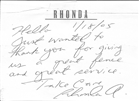 RHONDA
1/18/05
Hello
Just wanted to
thank you for giving
us a great fence
and great service.
Take Care,
Rhonda A